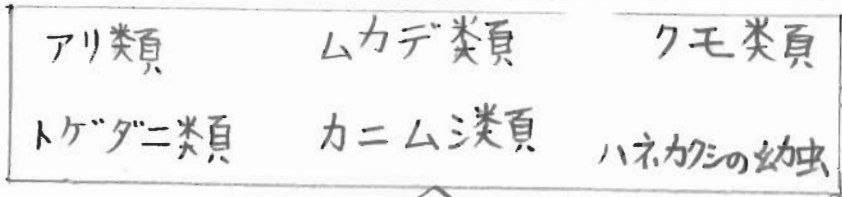 アリ類 ムカデ類 クモ類
トゲダニ類 カニムシ類 ハネカクシの幼虫